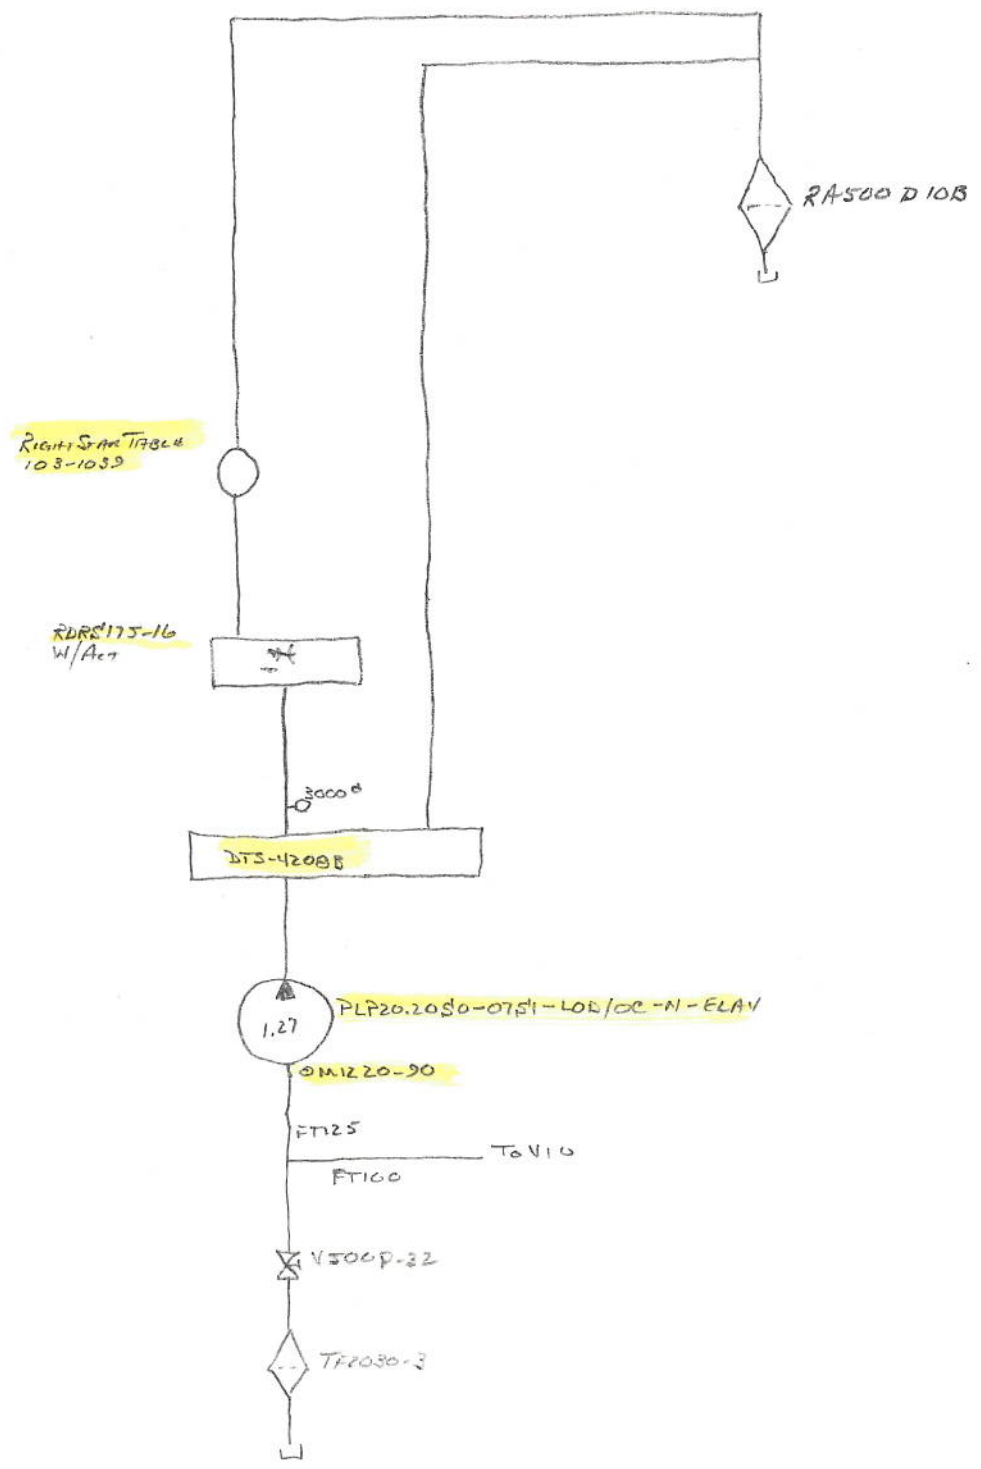 RA500 D 10B
RIGHT STAR TABLE
103-1039
RDRS175-16
W/ACT
3000#
DTS-420BB
1.27
PLP20.20S0-07S1-LOD/OC-N-ELAV
OM1220-90
FT125
TO V10
FT100
V500P-32
TF2030-3